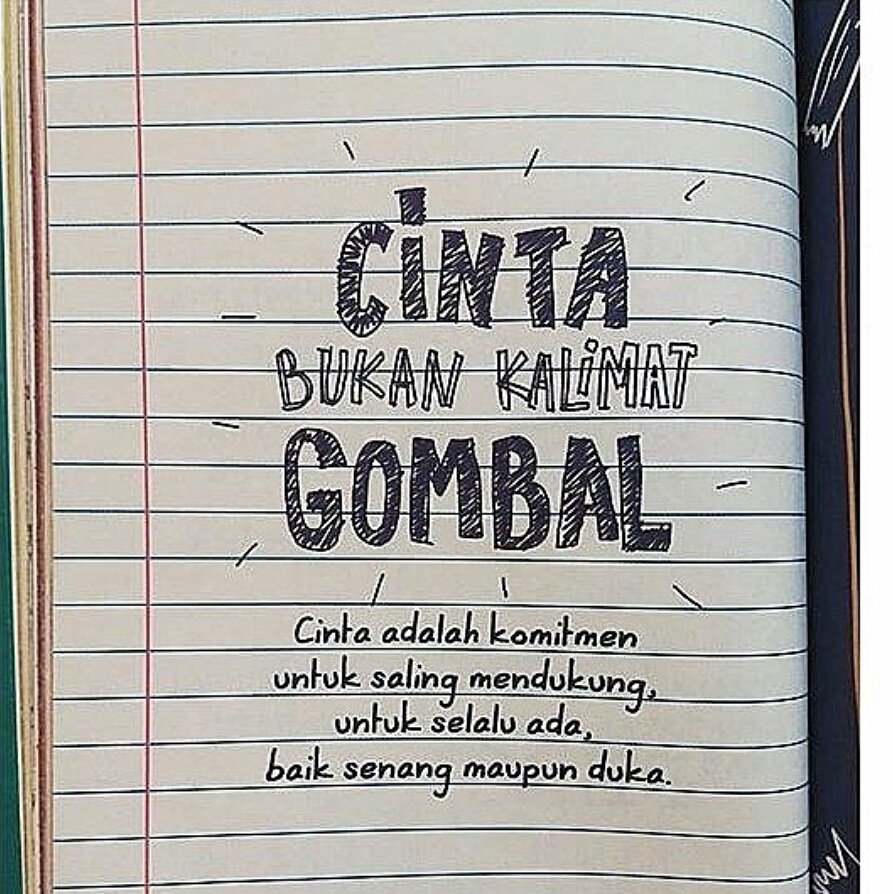 CINTA
BUKAN KALIMAT
GOMBAL
Cinta adalah komitmen
untuk saling mendukung,
untuk selalu ada,
baik senang maupun duka.